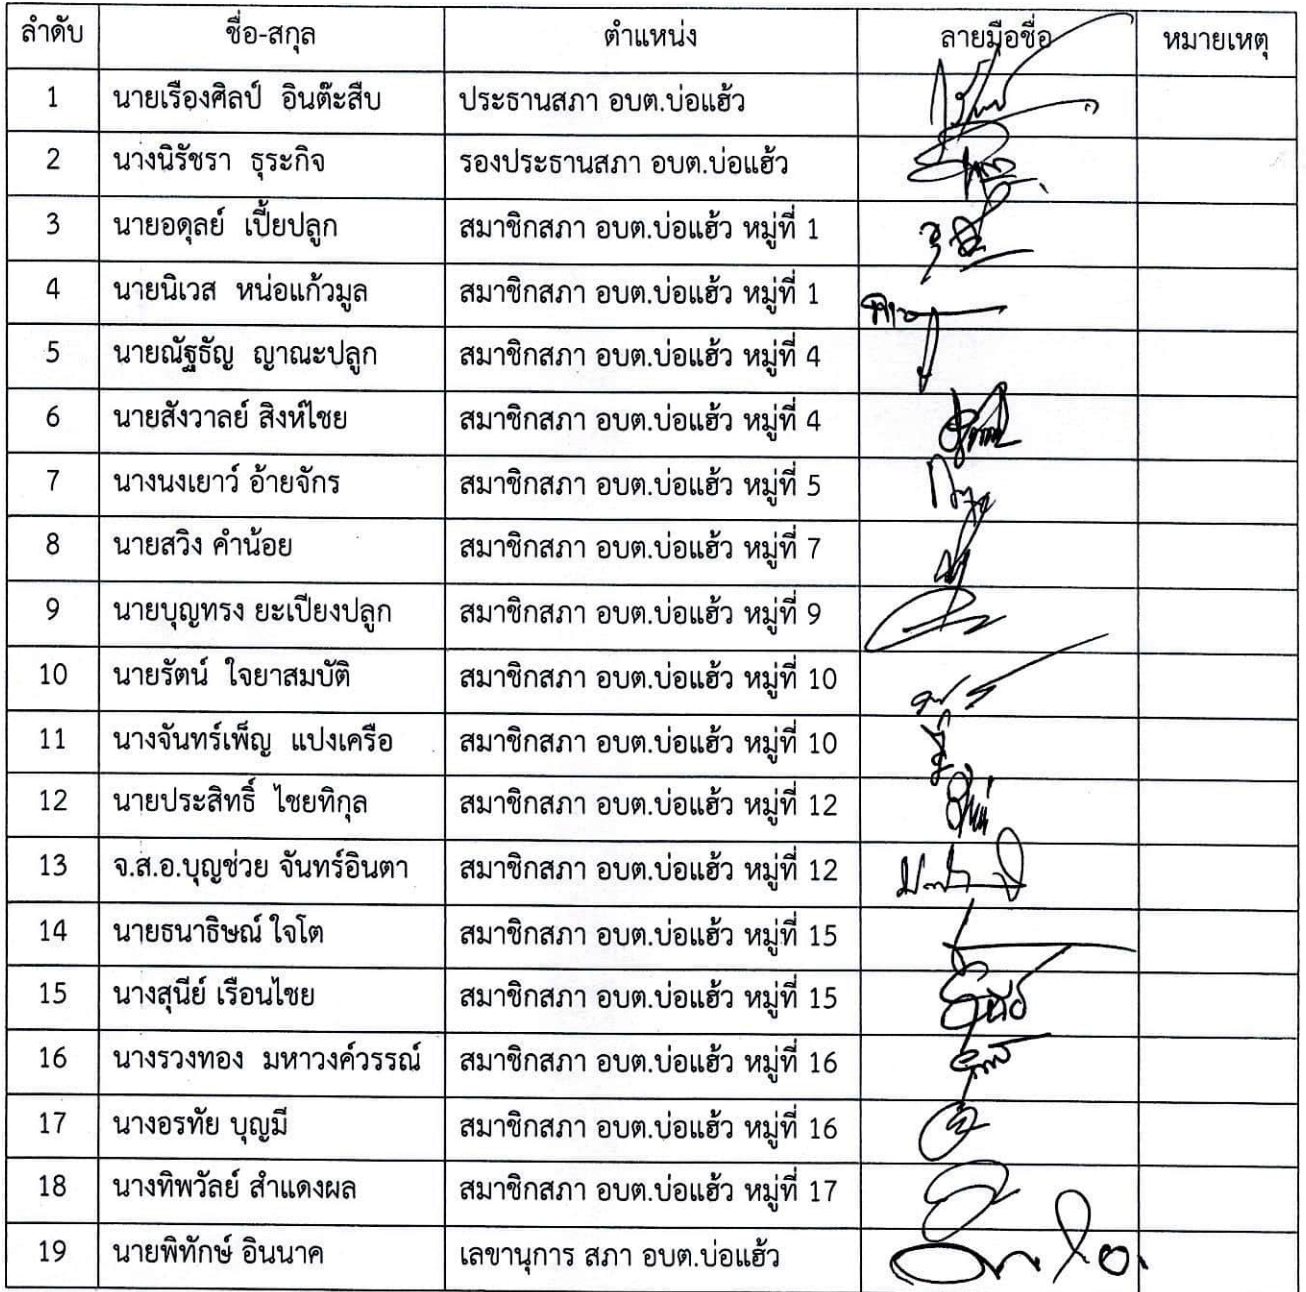 ลำดับ ชื่อ-สกุล ตำแหน่ง ลายมือชื่อ หมายเหตุ
1 นายเรืองศิลป์ อินต๊ะสืบ ประธานสภา อบต.บ่อแฮ้ว
2 นางนิรัชรา ธุระกิจ รองประธานสภา อบต.บ่อแฮ้ว
3 นายอดุลย์ เปี้ยปลูก สมาชิกสภา อบต.บ่อแฮ้ว หมู่ที่ 1
4 นายนิเวส หน่อแก้วมูล สมาชิกสภา อบต.บ่อแฮ้ว หมู่ที่ 1
5 นายณัฐธัญ ญาณะปลูก สมาชิกสภา อบต.บ่อแฮ้ว หมู่ที่ 4
6 นายสังวาลย์ สิงห์ไชย สมาชิกสภา อบต.บ่อแฮ้ว หมู่ที่ 4
7 นางนงเยาว์ อ้ายจักร สมาชิกสภา อบต.บ่อแฮ้ว หมู่ที่ 5
8 นายสวิง คำน้อย สมาชิกสภา อบต.บ่อแฮ้ว หมู่ที่ 7
9 นายบุญทรง ยะเปียงปลูก สมาชิกสภา อบต.บ่อแฮ้ว หมู่ที่ 9
10 นายรัตน์ ใจยาสมบัติ สมาชิกสภา อบต.บ่อแฮ้ว หมู่ที่ 10
11 นางจันทร์เพ็ญ แปงเครือ สมาชิกสภา อบต.บ่อแฮ้ว หมู่ที่ 10
12 นายประสิทธิ์ ไชยทิกุล สมาชิกสภา อบต.บ่อแฮ้ว หมู่ที่ 12
13 จ.ส.อ.บุญช่วย จันทร์อินตา สมาชิกสภา อบต.บ่อแฮ้ว หมู่ที่ 12
14 นายธนาธิษณ์ ใจโต สมาชิกสภา อบต.บ่อแฮ้ว หมู่ที่ 15
15 นางสุนีย์ เรือนไชย สมาชิกสภา อบต.บ่อแฮ้ว หมู่ที่ 15
16 นางรวงทอง มหาวงค์วรรณ์ สมาชิกสภา อบต.บ่อแฮ้ว หมู่ที่ 16
17 นางอรทัย บุญมี สมาชิกสภา อบต.บ่อแฮ้ว หมู่ที่ 16
18 นางทิพวัลย์ สำแดงผล สมาชิกสภา อบต.บ่อแฮ้ว หมู่ที่ 17
19 นายพิทักษ์ อินนาค เลขานุการ สภา อบต.บ่อแฮ้ว